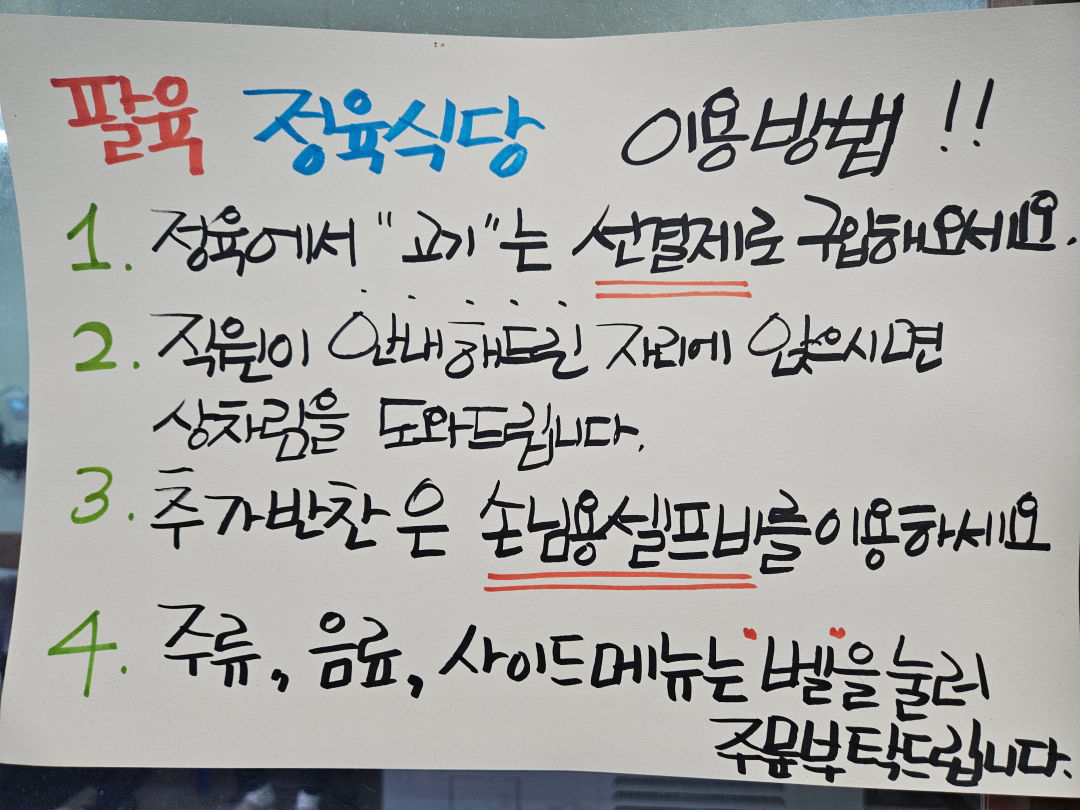 팔육 정육식당 이용방법 !!
1. 정육에서 "고기"는 선결제로 구입해요세요.
2. 직원이 안내해드린 자리에 앉으시면
상차림을 도와드립니다.
3. 추가반찬은 손님용셀프바를이용하세요
4. 주류, 음료, 사이드메뉴는 벨을눌러
주문부탁드립니다.